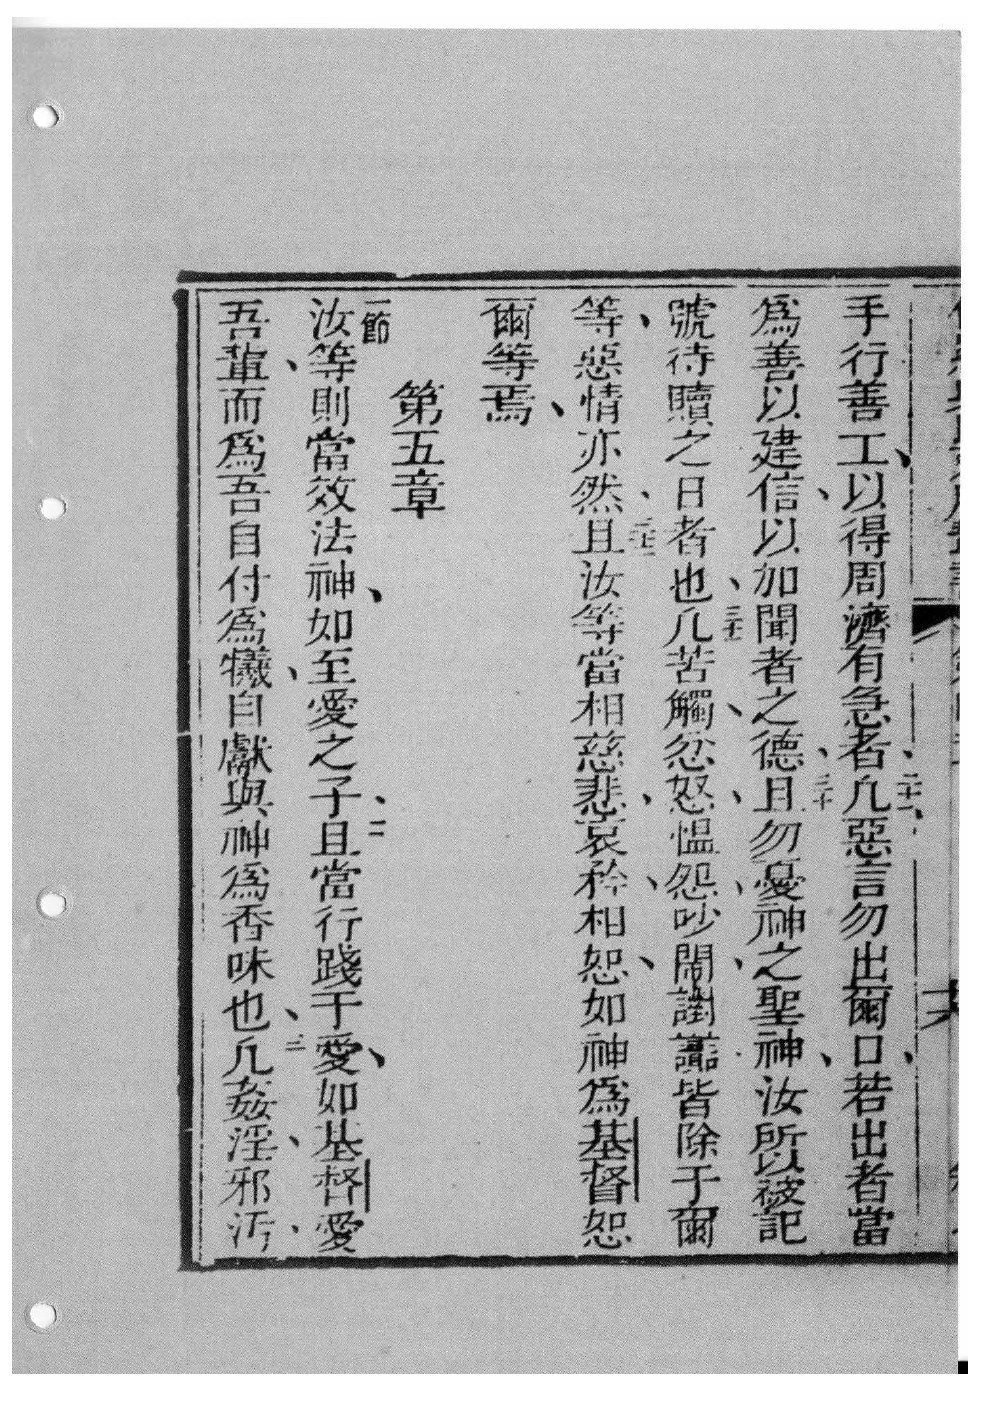 手行善工、以得周濟有急者、二十九凢惡言勿出爾口、若出者當
爲善以建信、以加聞者之德、三十且勿憂神之聖神、汝所以被記
號待贖之日者也、三十一凢苦觸、忿怒、慍怨、吵鬧、讟讟皆除于爾
等、惡情亦然、三十二且汝等當相慈悲、哀矜、相恕、如神爲基督恕
爾等焉、
第五章
一節汝等則當效法神、如至愛之子、二且當行踐于愛、如基督愛
吾輩、而爲吾自付爲犧、自獻與神爲香味也、三凢姦淫、邪汚、